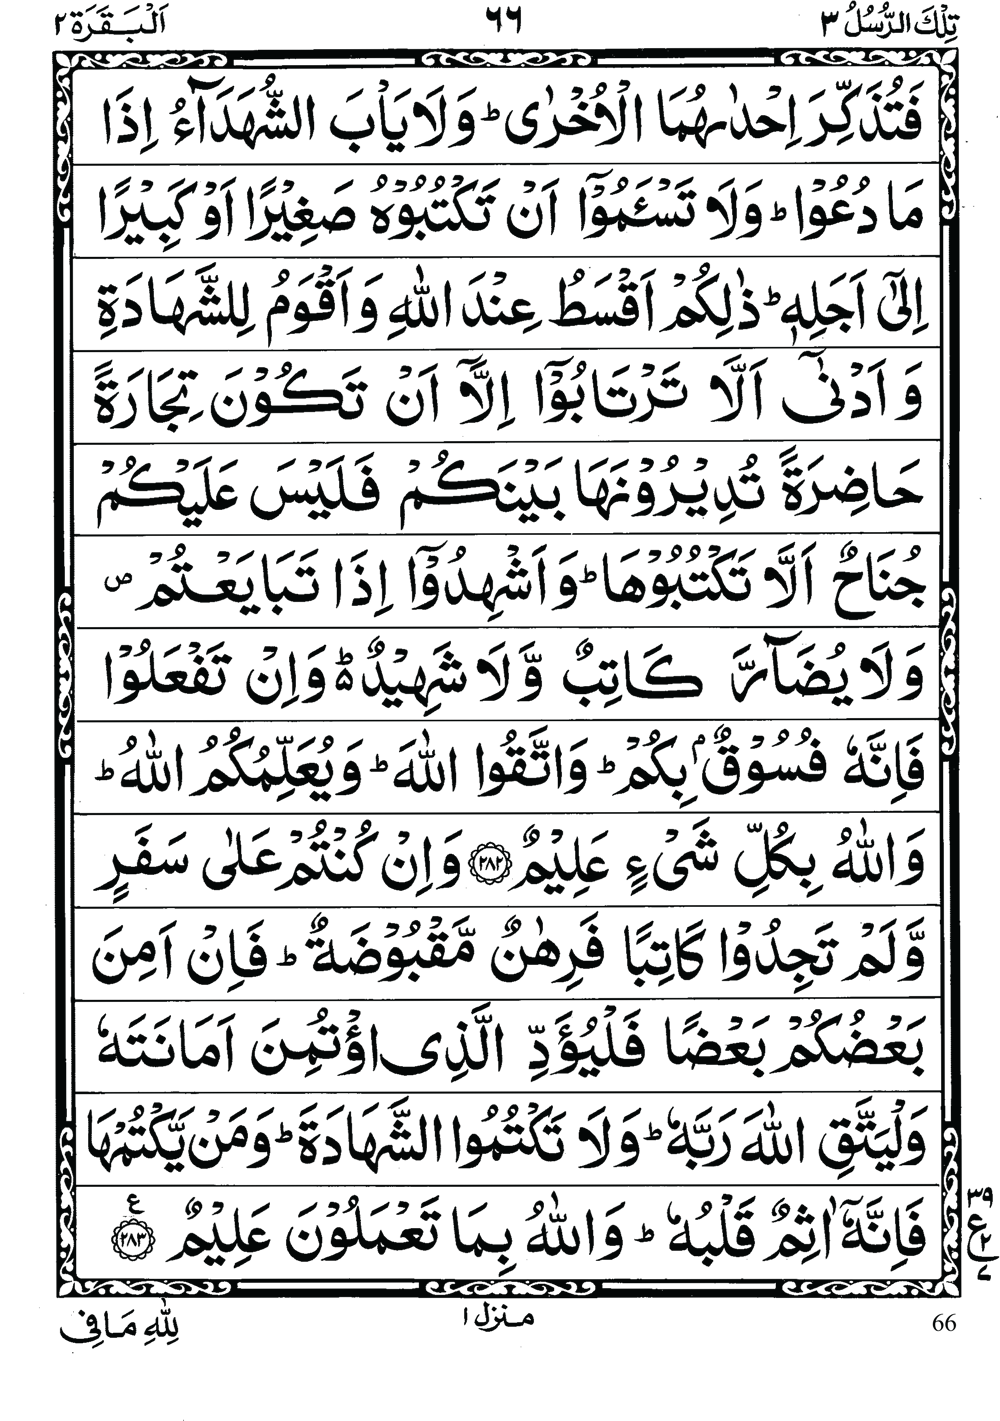 تِلْكَ الرُّسُلُ ٣
٦٦
اَلْبَقَرَة ٢
فَتُذَكِّرَ اِحْدٰىهُمَا الْاُخْرٰى ؕ وَلَا يَاْبَ الشُّهَدَآءُ اِذَا
مَا دُعُوْا ؕ وَلَا تَسْـَٔمُوْۤا اَنْ تَكْتُبُوْهُ صَغِيْرًا اَوْ كَبِيْرًا
اِلٰۤى اَجَلِهٖ ؕ ذٰلِكُمْ اَقْسَطُ عِنْدَ اللّٰهِ وَاَقْوَمُ لِلشَّهَادَةِ
وَاَدْنٰۤى اَلَّا تَرْتَابُوْۤا اِلَّاۤ اَنْ تَكُوْنَ تِجَارَةً
حَاضِرَةً تُدِيْرُوْنَهَا بَيْنَكُمْ فَلَيْسَ عَلَيْكُمْ
جُنَاحٌ اَلَّا تَكْتُبُوْهَا ؕ وَاَشْهِدُوْۤا اِذَا تَبَايَعْتُمْ ص
وَلَا يُضَآرَّ كَاتِبٌ وَّلَا شَهِيْدٌ ؕ۬ وَاِنْ تَفْعَلُوْا
فَاِنَّهٗ فُسُوْقٌۢ بِكُمْ ؕ وَاتَّقُوا اللّٰهَ ؕ وَيُعَلِّمُكُمُ اللّٰهُ ؕ
وَاللّٰهُ بِكُلِّ شَىْءٍ عَلِيْمٌ ﴿٢٨٢﴾ وَاِنْ كُنْتُمْ عَلٰى سَفَرٍ
وَّلَمْ تَجِدُوْا كَاتِبًا فَرِهٰنٌ مَّقْبُوْضَةٌ ؕ فَاِنْ اَمِنَ
بَعْضُكُمْ بَعْضًا فَلْيُؤَدِّ الَّذِى اؤْتُمِنَ اَمَانَتَهٗ
وَلْيَتَّقِ اللّٰهَ رَبَّهٗ ؕ وَلَا تَكْتُمُوا الشَّهَادَةَ ؕ وَمَنْ يَّكْتُمْهَا
فَاِنَّهٗۤ اٰثِمٌ قَلْبُهٗ ؕ وَاللّٰهُ بِمَا تَعْمَلُوْنَ عَلِيْمٌ ﴿٢٨٣﴾ ع
٣٩
ع
٢
٧
66
مـنزل ١
لِلّٰهِ مَا فِى